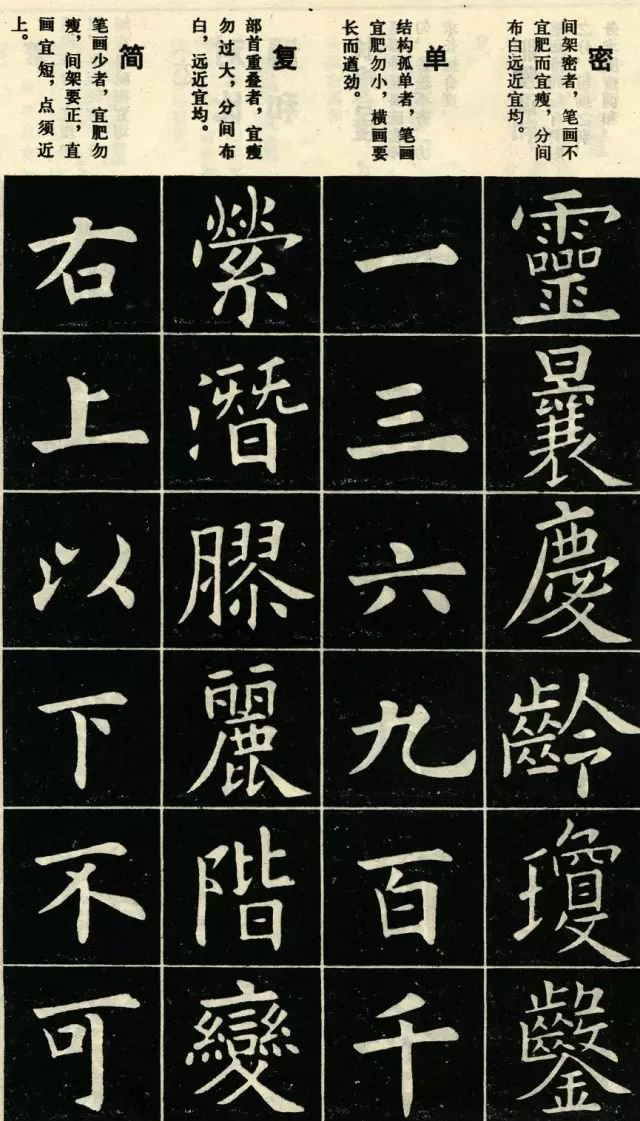 密
间架密者，笔画不
宜肥而宜瘦，分间
布白远近宜均。
靈
曩
慶
齡
瓊
鑿
单
结构孤单者，笔画
宜肥勿小，横画要
长而遒劲。
一
三
六
九
百
千
复
部首重叠者，宜瘦
勿过大，分间布
白，远近宜均。
縈
潛
膠
麗
階
變
简
笔画少者，宜肥勿
瘦，间架要正，直
画宜短，点须近
上。
右
上
以
下
不
可